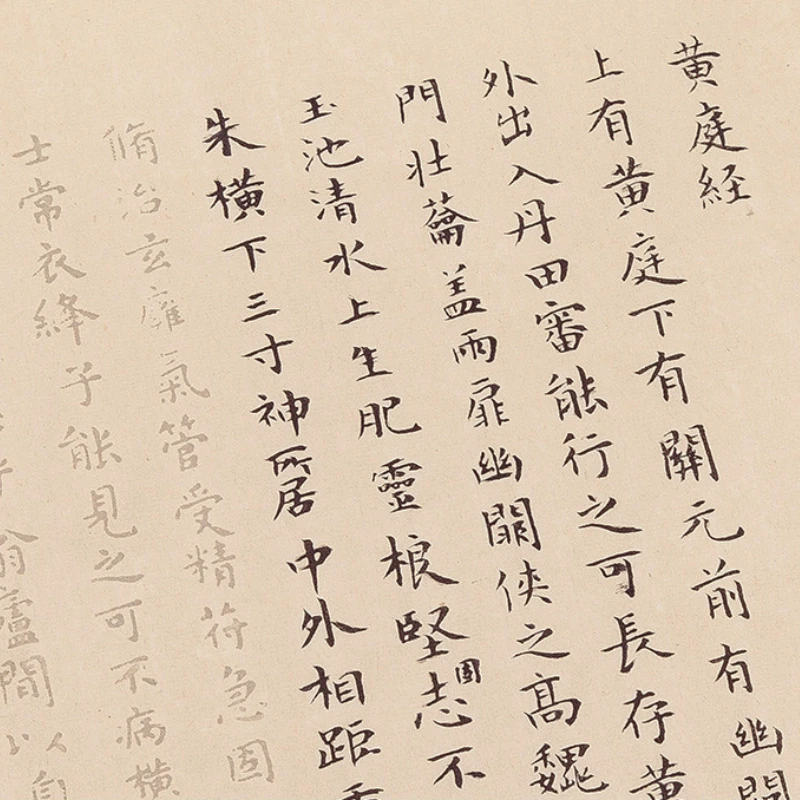 黄庭経
上有黄庭下有關元前有幽
外出入丹田審能行之可長存黄
門壯蘥盖兩扉幽關俠之髙魏
玉池清水上生肥靈根堅固志不
朱橫下三寸神所居中外相距重
脩治玄廱氣管受精符急固
士常衣絳子能見之可不病橫
廬間以自